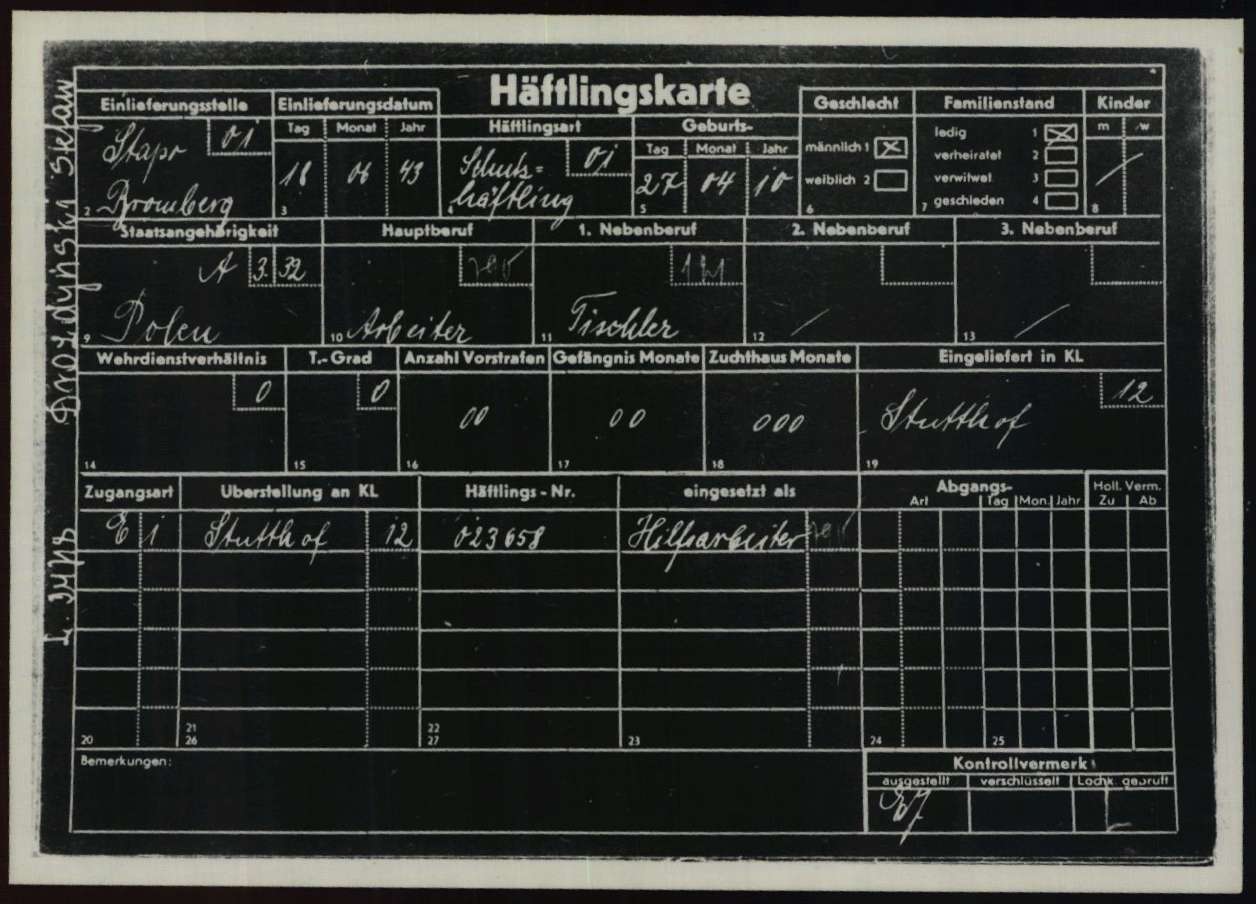 Häftlingskarte
Einlieferungsstelle
01
Stapo
Bromberg
2
Einlieferungsdatum
Tag Monat Jahr
18 06 43
3
Häftlingsart
01
Schutz=
häftling
4
Geburts-
Tag Monat Jahr
27 04 10
5
Geschlecht
männlich 1
weiblich 2
6
Familienstand
ledig 1
verheiratet 2
verwitwet 3
geschieden 4
7
Kinder
m w
8
Staatsangehörigkeit
A 3. 32
Polen
9
Hauptberuf
10 Arbeiter
1. Nebenberuf
121
Tischler
11
2. Nebenberuf
12
3. Nebenberuf
13
Wehrdienstverhältnis
0
14
T.-Grad
0
15
Anzahl Vorstrafen
00
16
Gefängnis Monate
00
17
Zuchthaus Monate
000
18
Eingeliefert in KL
12
Stutthof
19
Zugangsart Überstellung an KL Häftlings-Nr. eingesetzt als Abgangs- Holl. Verm.
Art Tag Mon. Jahr Zu Ab
E 1 Stutthof 12 023658 Hilfsarbeiter
20 21 22 23 24 25
26 27
Bemerkungen:
Kontrollvermerk
ausgestellt verschlüsselt Lochk. geprüft
Stefan